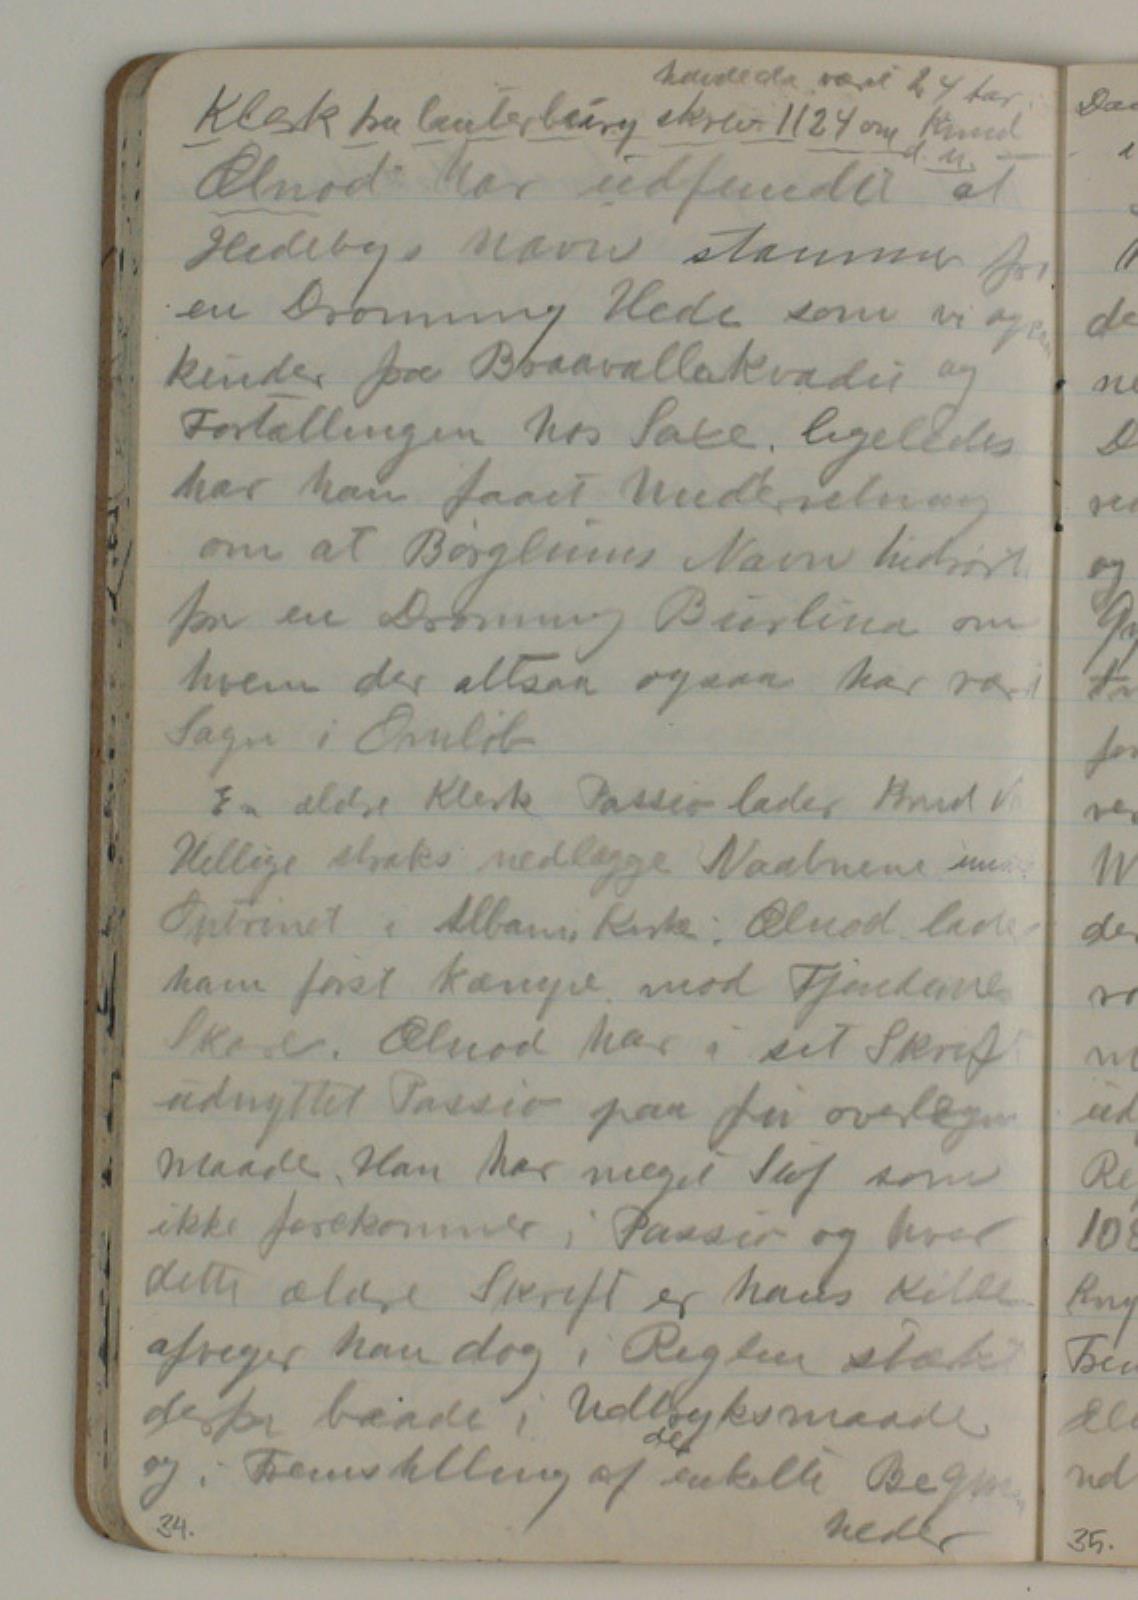 havde da været 24 Aar
Klerk fra Canterbury skrev 1124 om Knud
d. H.
Ælnod har udfundet at
Hedebys Navn stammer fra
en Dronning Hede som vi ogsaa
kender fra Braavallakvadet og
Fortællingen hos Saxe. ligeledes
har han faaet Underretning
om at Børglums Navn hidrører
fra en Dronning Burlina om
hvem der altsaa ogsaa har været
Sagn i Omløb
En ældre Klerk Passio lader Knud
Hellige straks nedlægge Vaabnene
Optrinet i Albani Kirke. Ælnod lader
ham først kæmpe mod Fjendernes
Skare. Ælnod har i sit Skrift
udnyttet Passio paa fri overlegen
Maade. Han har meget Stof som
ikke forekommer i Passio og hvor
dette ældre Skrift er hans Kilde
afviger han dog i Reglen stærkt
derfra baade i Udtryksmaade
og i Fremstilling af de enkelte Begiven
heder
34.
35.